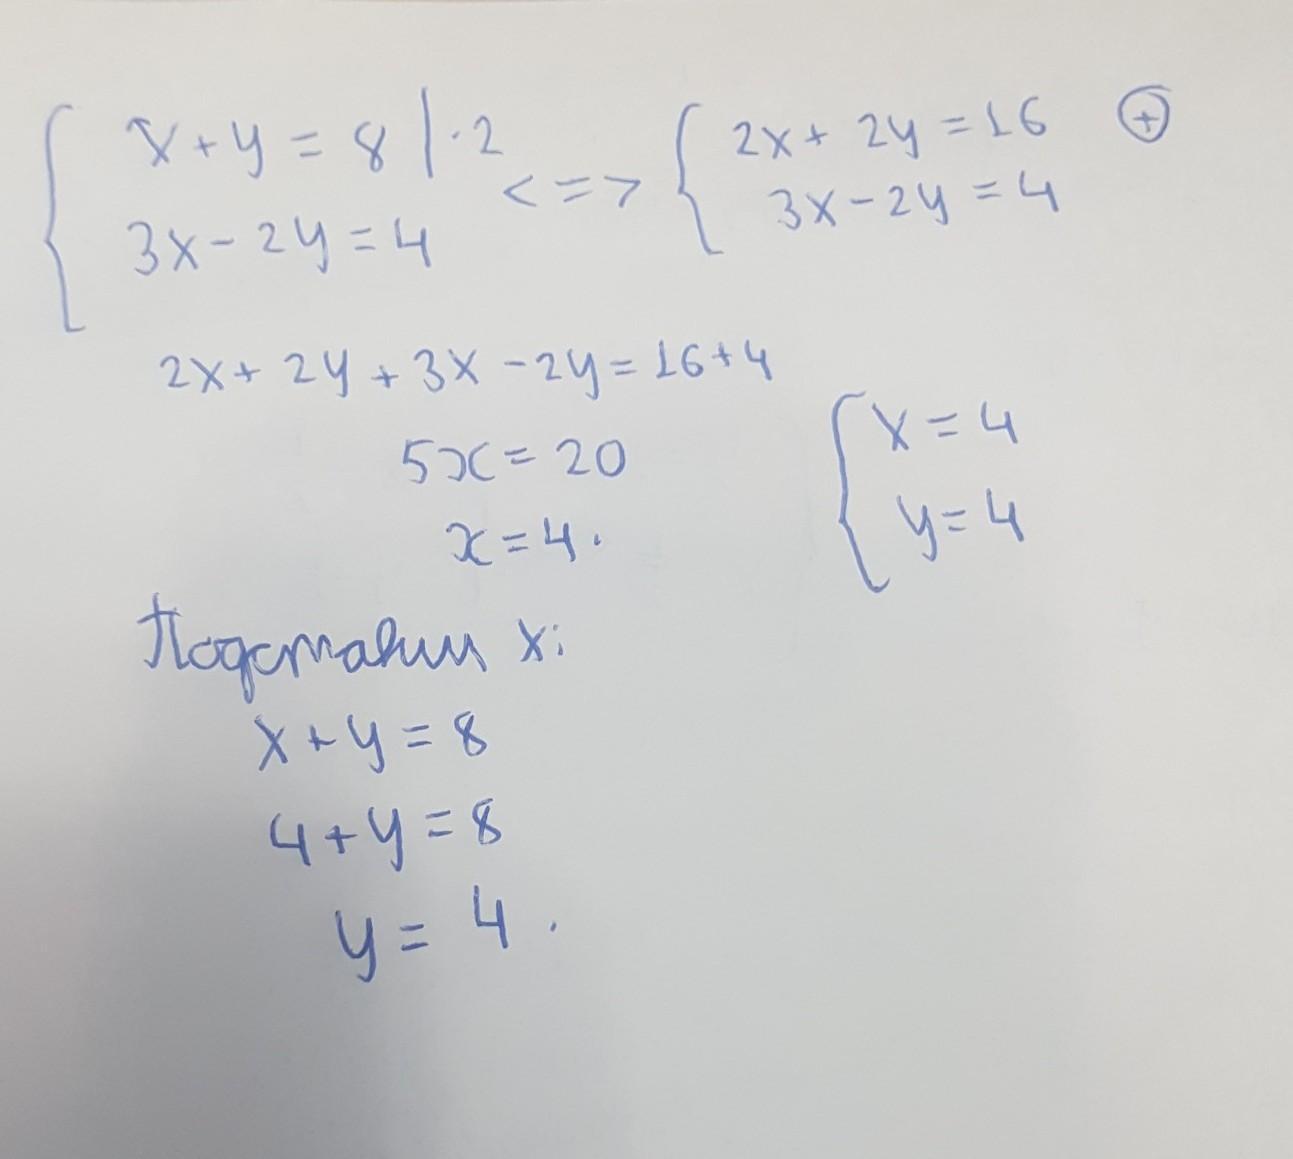 x+y=8 |·2 <=> 2x+2y=16 ⊕
3x-2y=4 3x-2y=4
2x+2y+3x-2y=16+4
5x=20 x=4
x=4. y=4
Подставим x:
x+y=8
4+y=8
y=4.